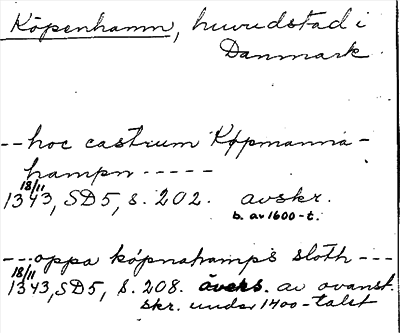 Köpenhamn, huvudstad i
Danmark.
--hoc castrum Køpmanna-
hampn -----
18/11
1343, SD5, s. 202. avskr.
b. av 1600-t.
---oppa köpnahamps sloth ---
18/11
1343, SD5, s. 208. övers. av ovanst.
skr. under 1400-talet